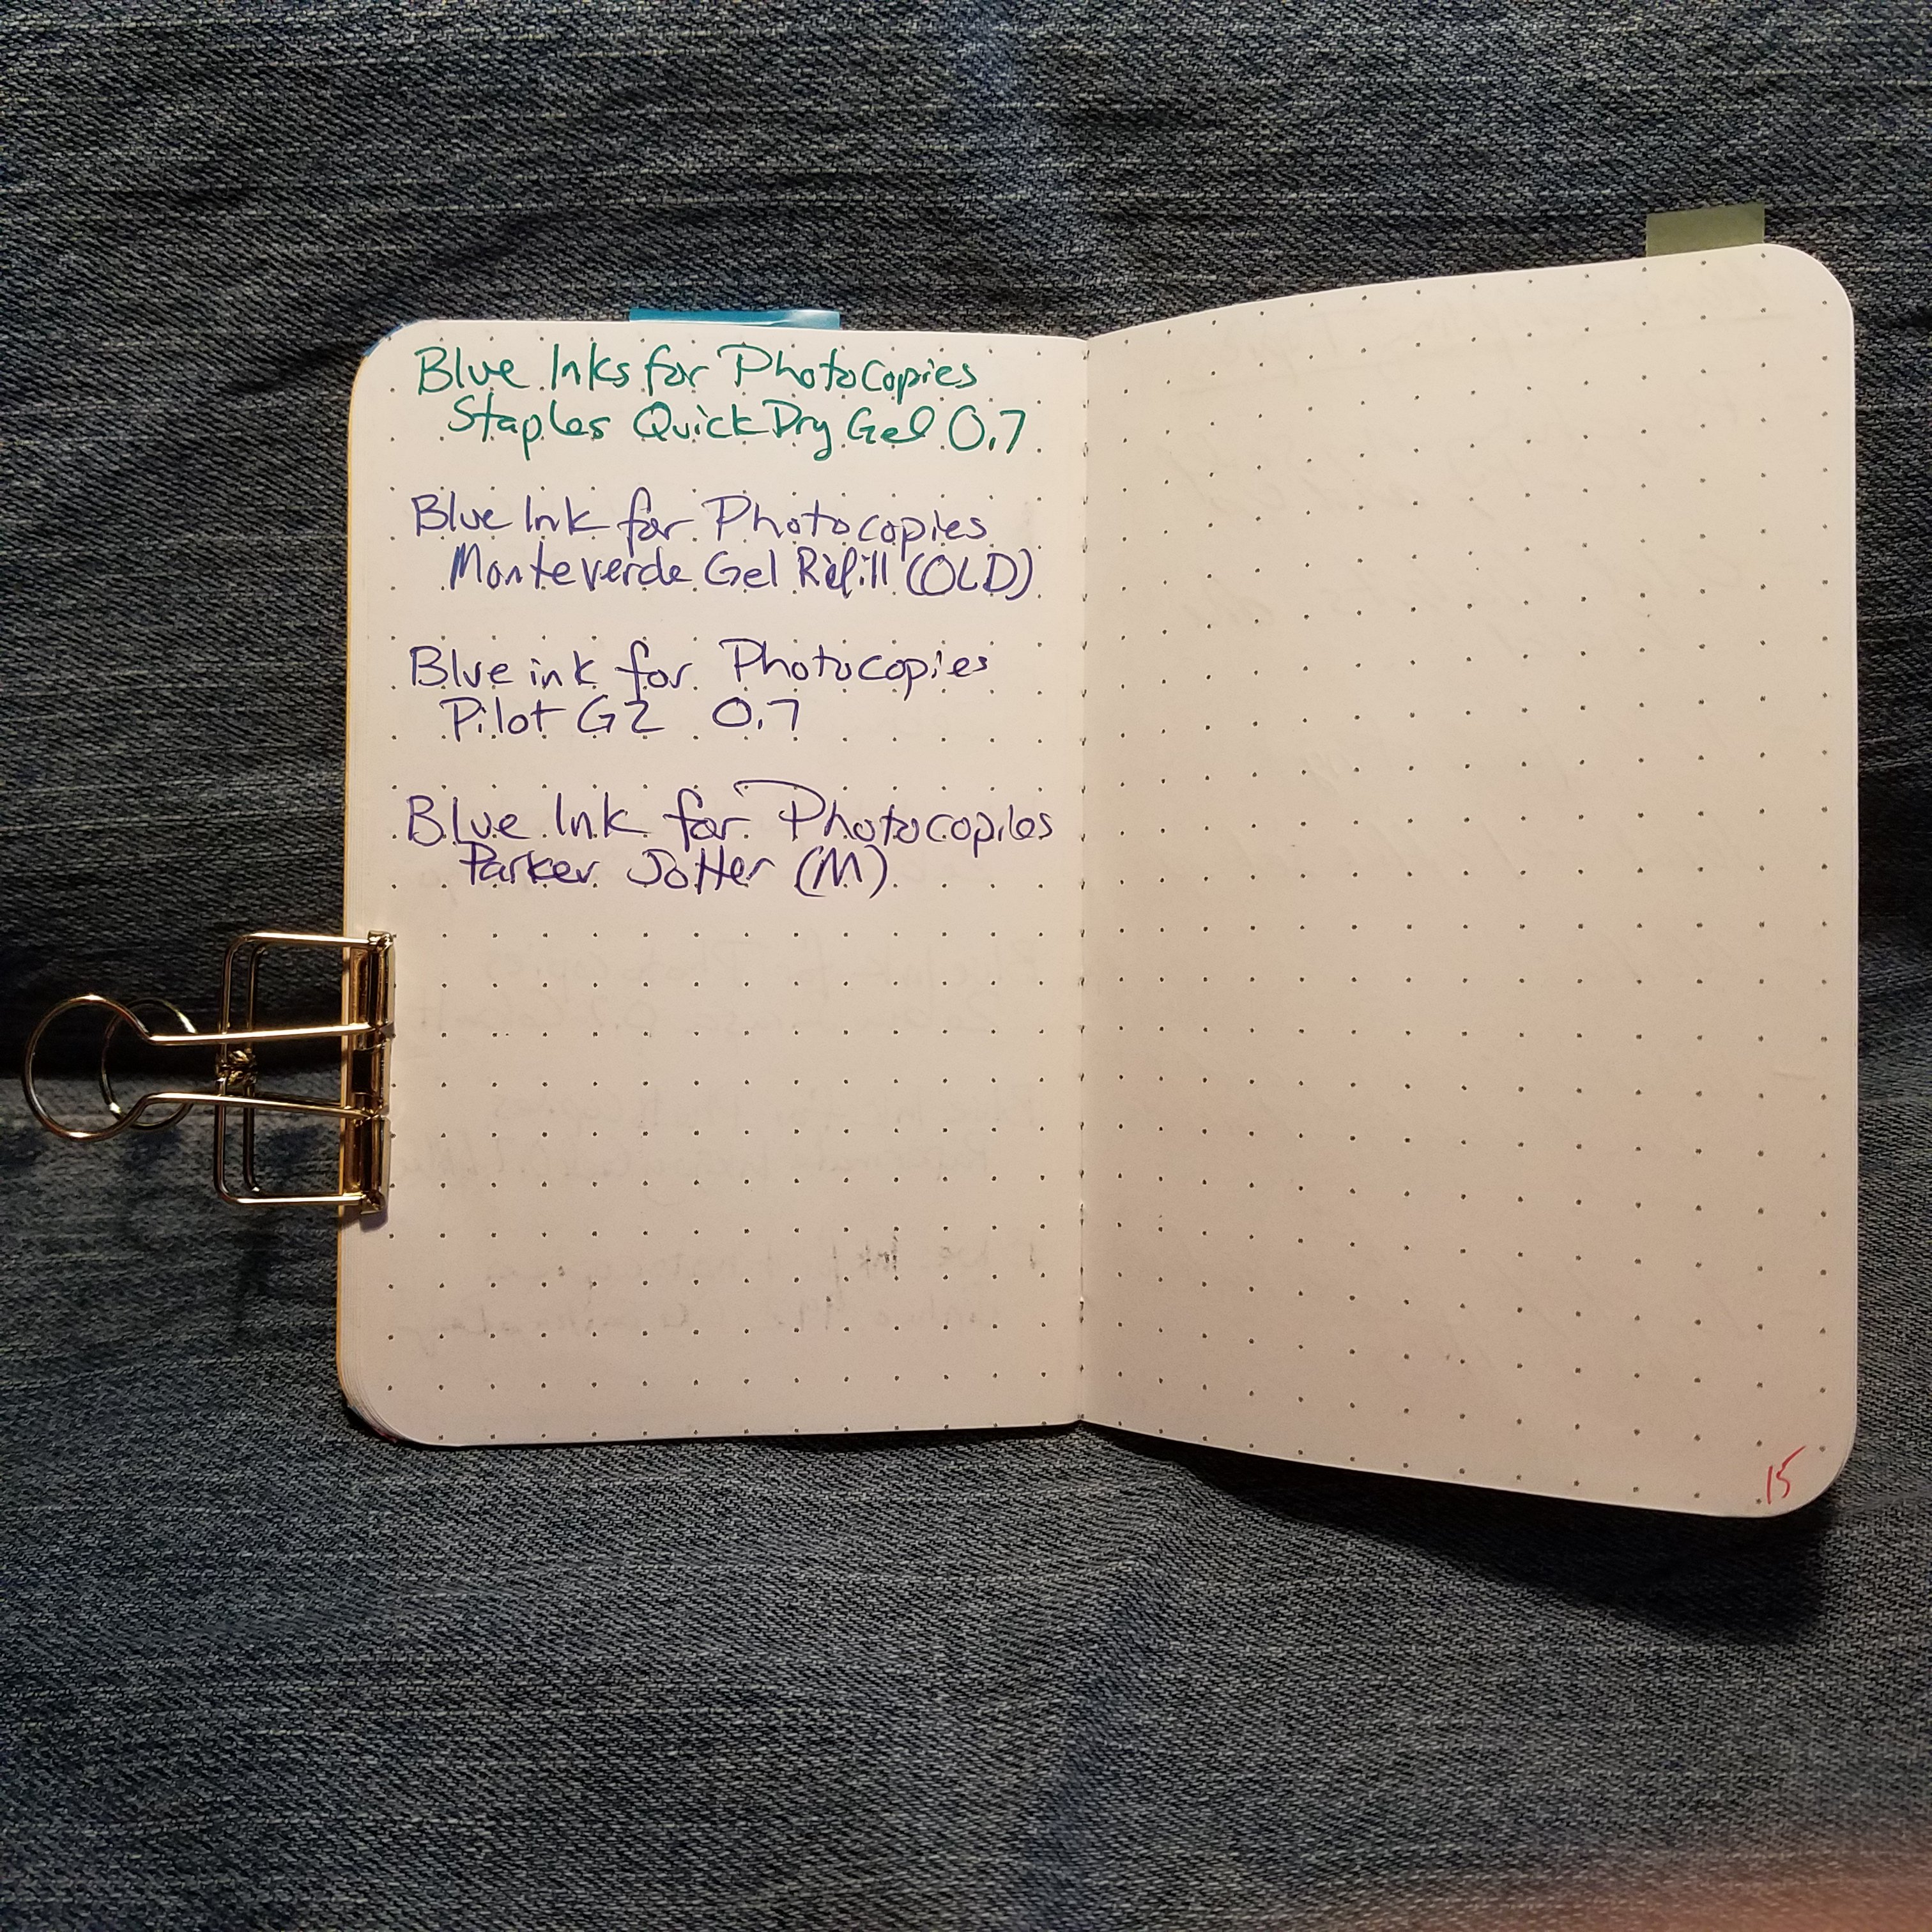 Blue Inks for Photocopies
Staples QuickDry Gel 0.7
Blue Ink for Photocopies
Monteverde Gel Refill (OLD)
Blue ink for Photocopies
Pilot G2 0.7
Blue Ink for Photocopies
Parker Jotter (M)
15